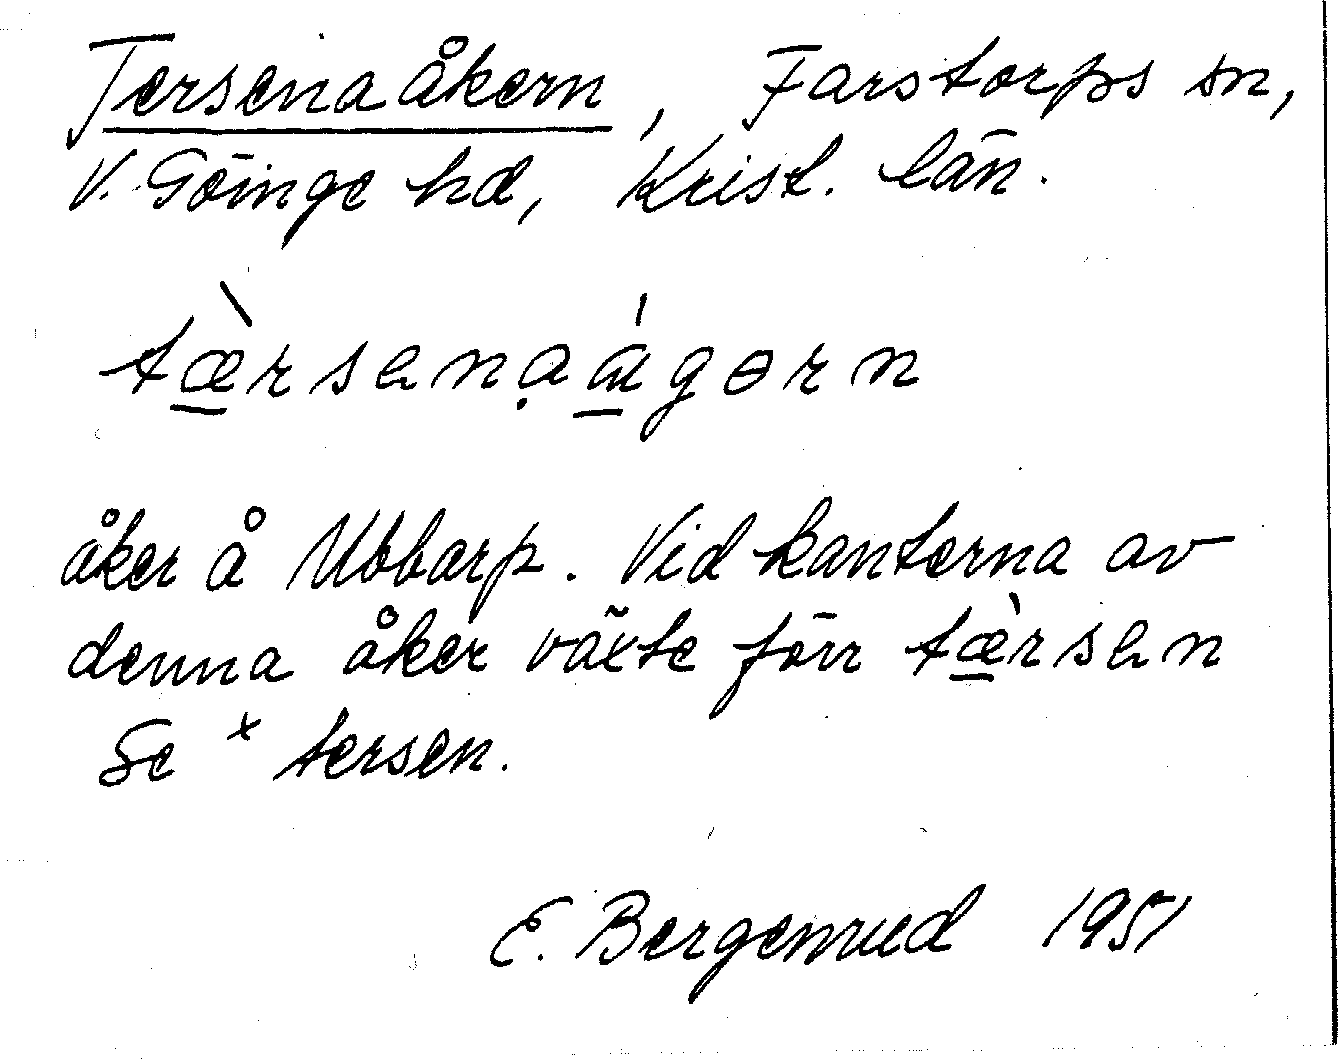 Tersenaåkern, Farstorps sn,
V. Göinge hd, Krist. län.
tæ̀rsenạágɵrn
åker å Ubbarp. Vid kanterna av
denna åker växte förr tæ̀rsen
Se ˣ tersen.
E. Bergenrud 1951